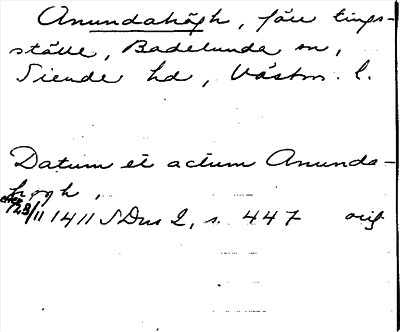 Anundahögh, före tings-
ställe, Badelunda sn,
Siende hd, Västm. l.
Datum et actum Anunda-
högh,
23/11 1411 SDns 2, s. 447 orig